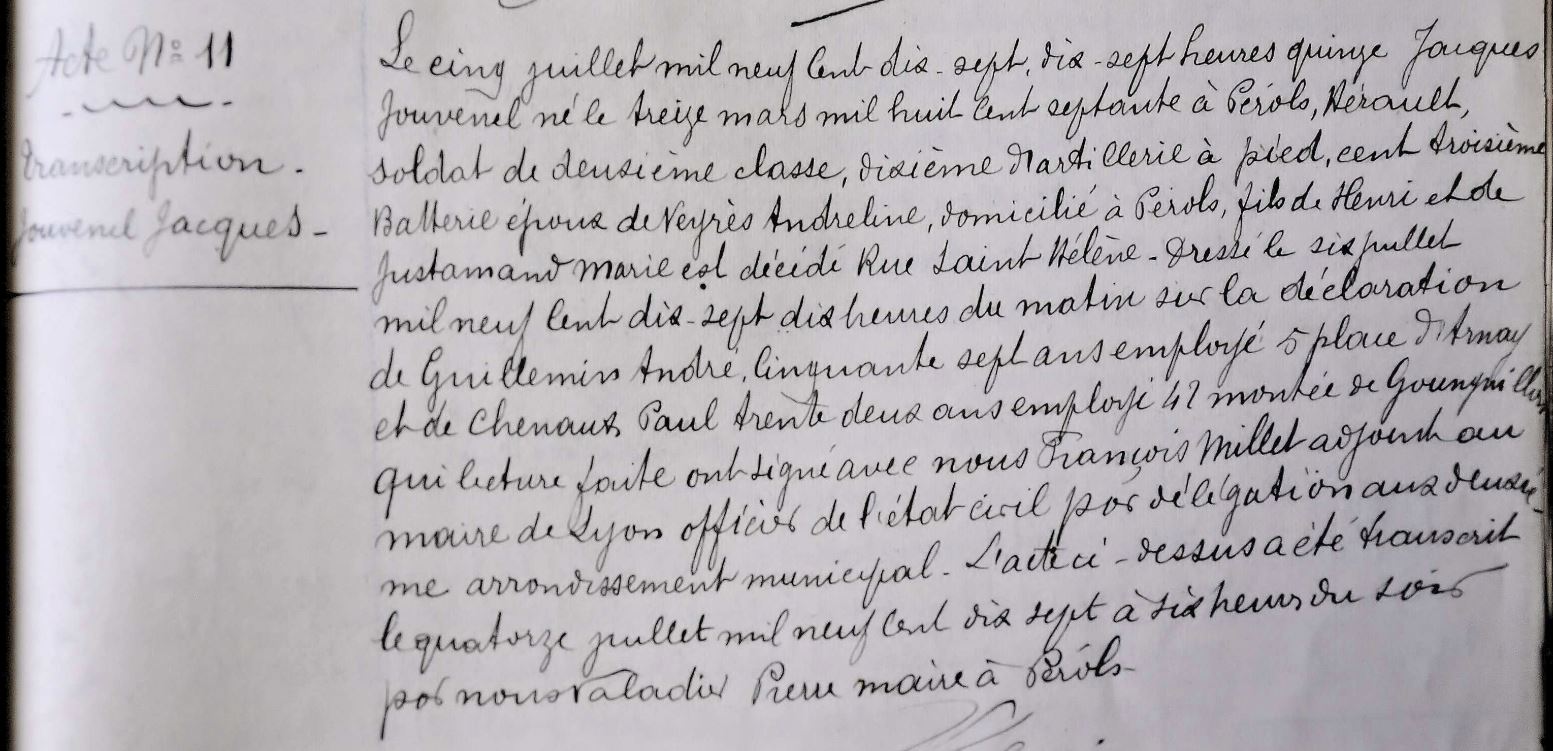 Acte N° 11
Transcription.
Jouvenel Jacques-
Le cinq juillet mil neuf Cent dix-sept, dix-sept heures quinze Jacques
Jouvenel né le treize mars mil huit Cent septante à Pérols, Hérault,
soldat de deuxième classe, dixième d'artillerie à pied, cent troisième
Batterie époux de Veyrès Andreline, domicilié à Pérols, fils de Henri et de
Justamand Marie est décédé Rue Saint Hélène - Dressé le six juillet
mil neuf Cent dix-sept dix heures du matin sur la déclaration
de Guillemin André, Cinquante sept ans employé 5 place d'Arnay
et de Chenaux Paul trente deux ans employé 42 montée de
qui lecture faite ont signé avec nous François Millet adjoint au
maire de Lyon officier de l'état civil par délégation aux deuxiè-
me arrondissement municipal - L'acte ci-dessus a été transcrit
le quatorze juillet mil neuf Cent dix sept à six heures du soir
par nous Valadier Pierre maire à Pérols-